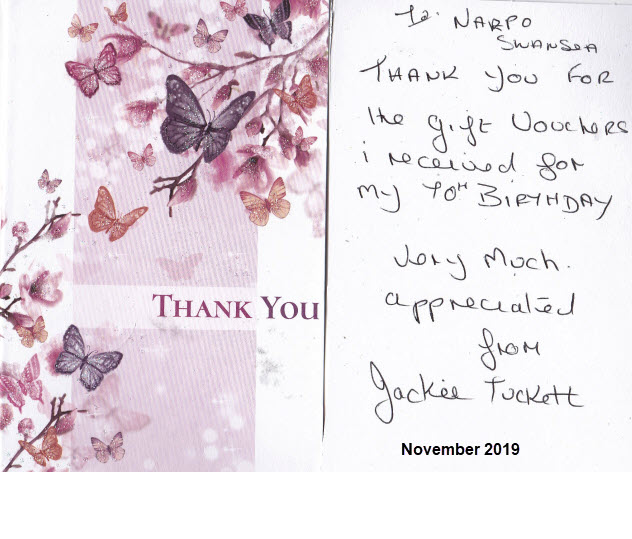 THANK YOU
To. NARPO
SWANSEA
THANK you FOR
the gift Vouchers
i received for
my 70TH BIRTHDAY
Very Much.
appreciated
from
Jackie Tuckett
November 2019